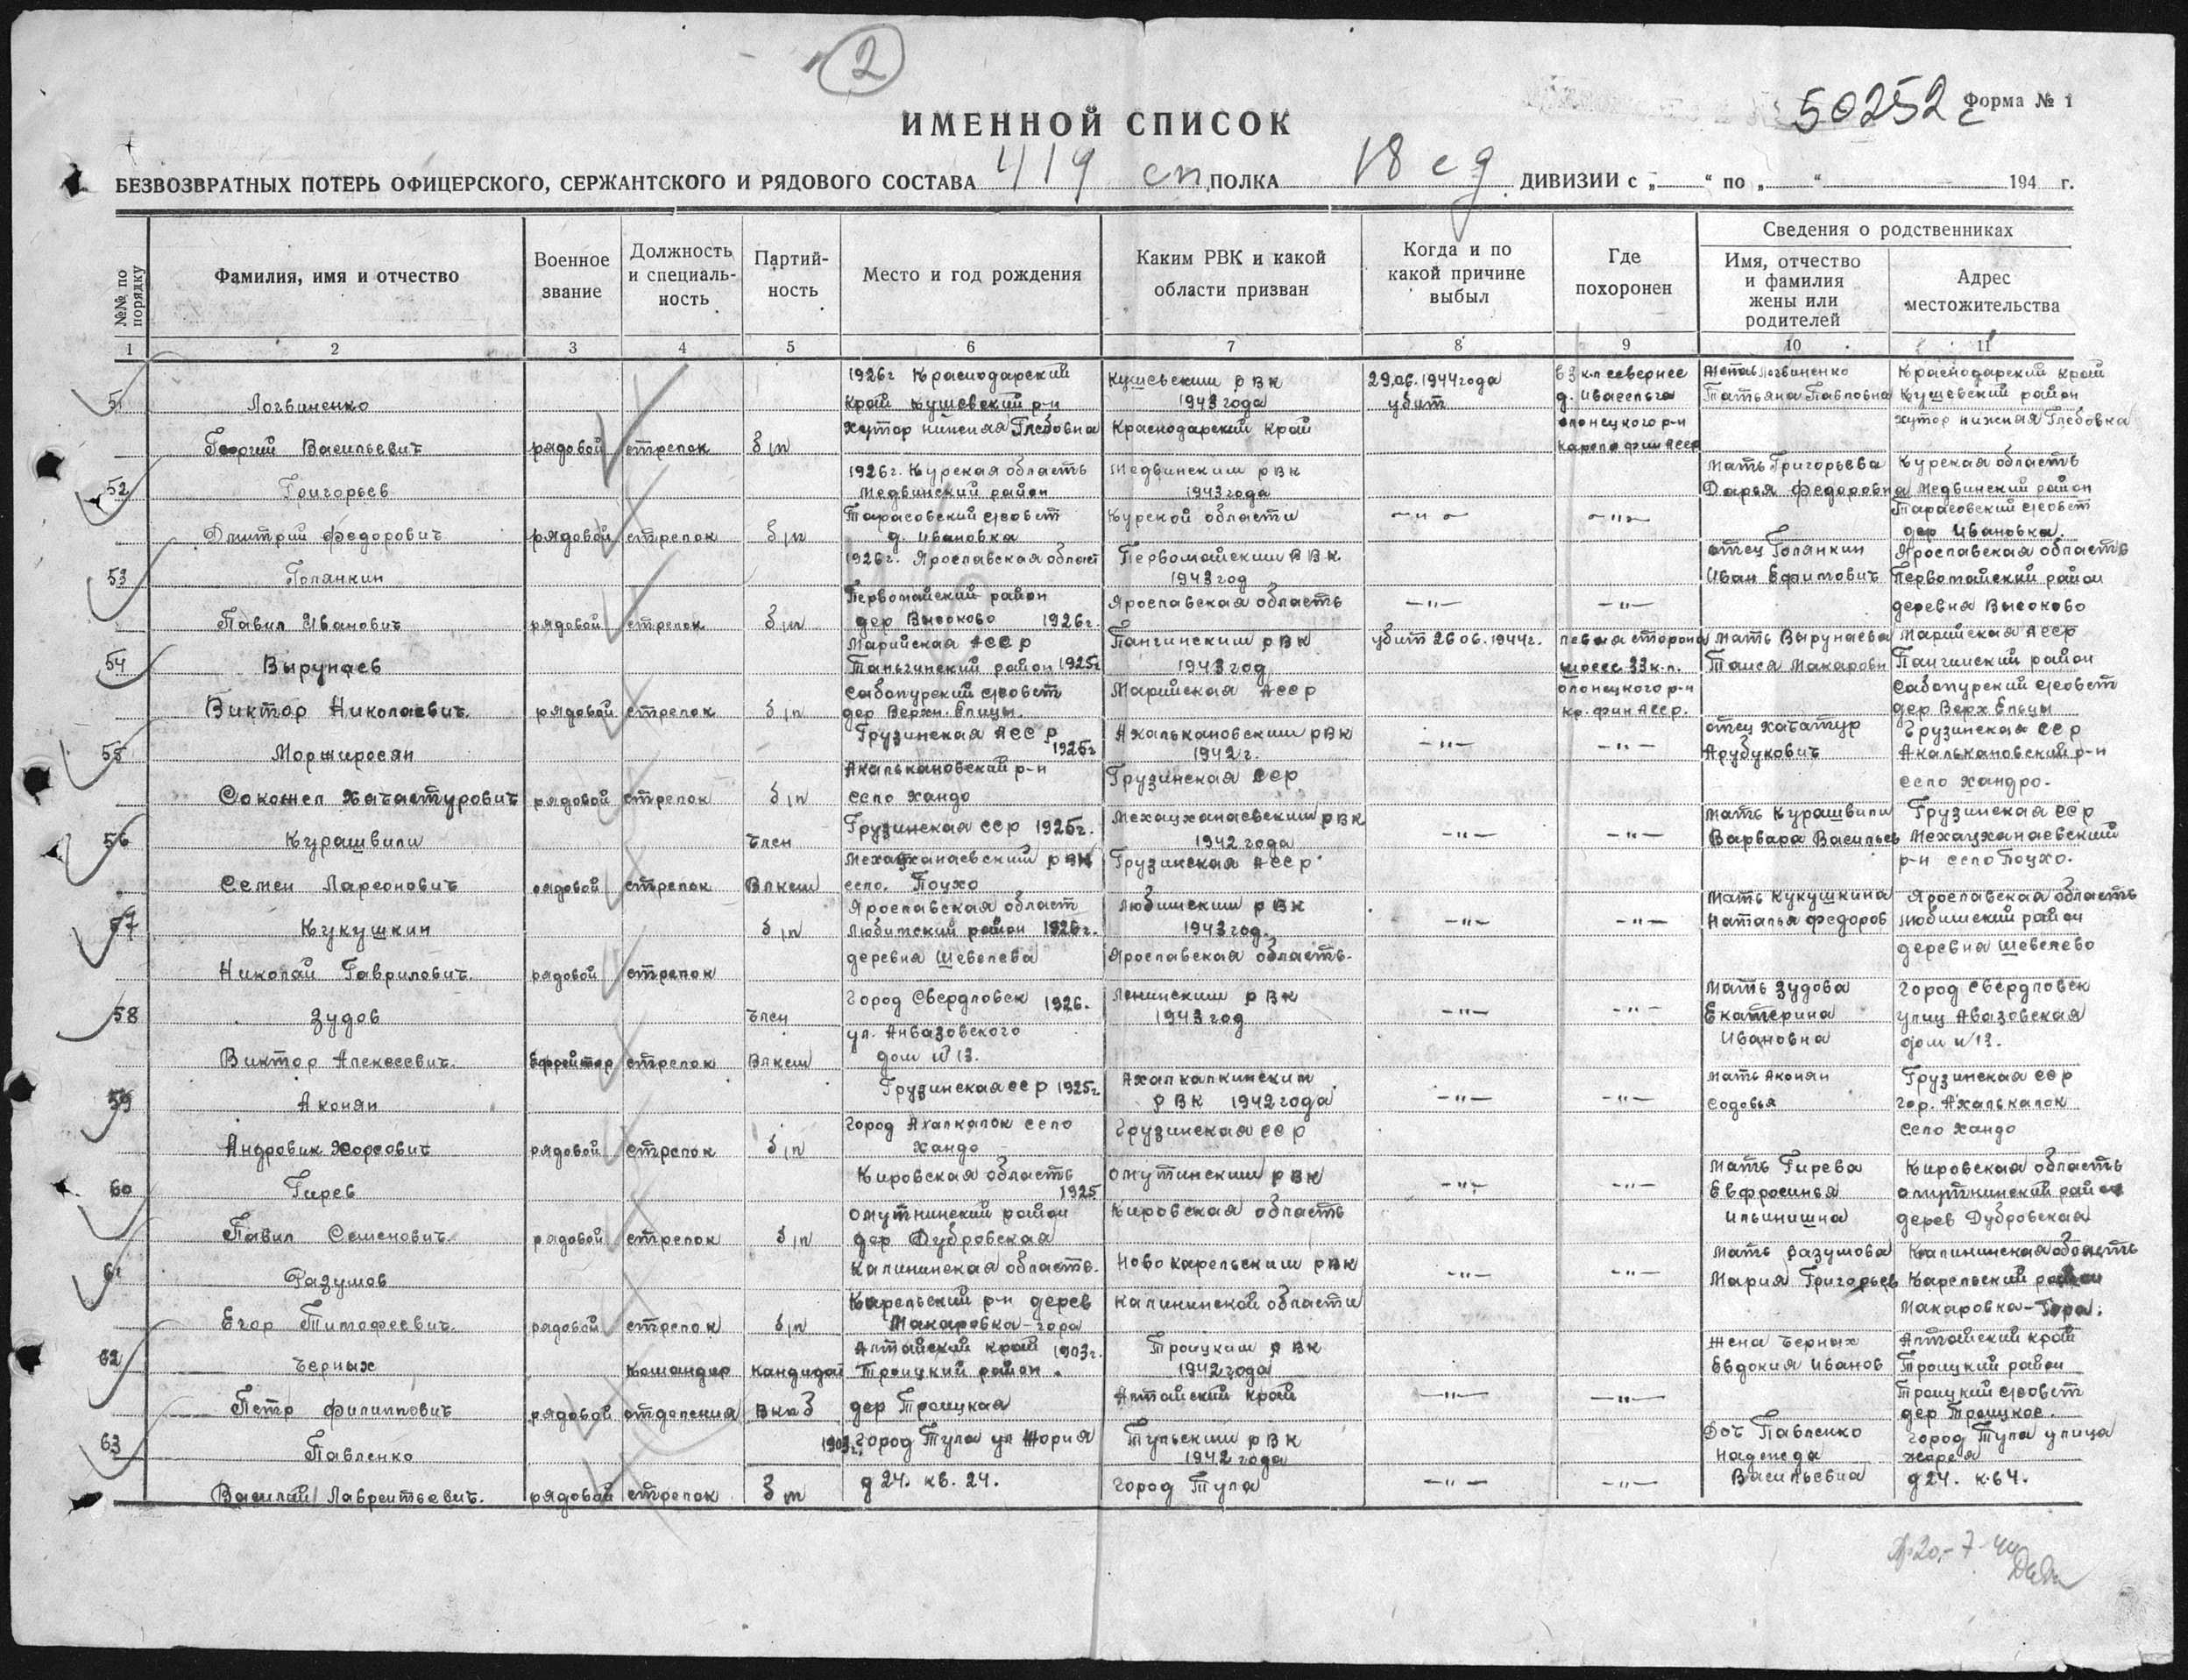 2
50252с
Форма № 1
ИМЕННОЙ СПИСОК
БЕЗВОЗВРАТНЫХ ПОТЕРЬ ОФИЦЕРСКОГО, СЕРЖАНТСКОГО И РЯДОВОГО СОСТАВА 419 сп ПОЛКА 18 сд ДИВИЗИИ с „ “ по „ “ 194 г.
№№ по порядку
Фамилия, имя и отчество
Военное звание
Должность и специаль-ность
Партий-ность
Место и год рождения
Каким РВК и какой области призван
Когда и по какой причине выбыл
Где похоронен
Сведения о родственниках
Имя, отчество и фамилия жены или родителей
Адрес местожительства
1 2 3 4 5 6 7 8 9 10 11
1926г Краснодарский Кущевским РВК 29.06.1944года в 3 к-п севернее Мать Логвиненко Краснодарский край
51 Логвиненко край Кущевский р-н 1943 года убит Татьяна Павловна Кущевский район
Георгий Васильевич рядовой стрелок б/п хутор нижняя Глебовна Краснодарский край олонецкого р-н хутор нижная Глебовка
Карело фин АССР
1926г. Курская область Медвинским РВК Мать Григорьева Курская область
52 Григорьев Медвинский район 1943 года Дарья Федоровна Медвинский район
Дмитрий Федорович рядовой стрелок б/п Тарасовский с/совет Курской области —"— —"— Тарасовский с/совет
д. Ивановка дер Ивановка.
1926г. Ярославская област Первомайским РВК отец Голянкин Ярославская область
53 Голянкин 1943 год Иван Ефимович Первомайский район
Павил Иванович рядовой стрелок б/п Первомайский район Ярославская область —"— —"— деревня Высоково
дер Высоково 1926г.
Марийская АССР Пангинским РВК убит 26 06. 1944г. левая сторона Мать Вырупаева Марийская АССР
54 Вырупаев Таньгинский район 1925г 1943 год шоссе 33 к.п. Таися Макаровн Пангинский район
Виктор Николаевич. рядовой стрелок б/п Сабопурский с/совет Марийская АССР олонецкого р-н Сабопурский с/совет
дер Верхн. Елицы. Ка. фин АССР. дер Верх Ельцы
Грузинская АССР 1925г Ахалькановским РВК —"— —"— отец Хачатур Грузинская ССР
55 Морширосян 1942 г. Арубукович Акалькановский р-н
Сокомел Хачатурович рядовой стрелок б/п Акалькановский р-н село Хандо Грузинская ССР село Хандро.
56 Курашвили член Грузинская ССР 1925г. Мехацханаевским РВК 1942 года —"— —"— Мать Курашвили Грузинская ССР
Варвара Васильев Мехацханаевский
Семен Ларсонович рядовой стрелок Влксм Мехацханаевский РВК село. Поцхо Грузинская АССР р-н село Поцхо.
Ярославская област Любимским РВК Мать Кукушкина Ярославская область
57 Кукушкин б/п Любимский район 1926г. 1943 год. —"— —"— Наталья Федоров Любимский район
Николай Гаврилович. рядовой стрелок деревня Шевелева Ярославская область. деревна Шевелево
58 Зудов член Город Свердловск 1926. Ленинским РВК 1943 год —"— —"— Мать Зудова Город Свердловск
Екатерина улиц Авазовская
Виктор Алексеевич. Ефрейтор стрелок Влксм ул. Анвазовского дом №13. Ивановна дом №13.
59 Аконян Грузинская ССР 1925г. Ахалкалкинским РВК 1942 года —"— —"— Мать Аконян Грузинская ССР
Содовья гор. Ахалькалок
Андровик Хорсович рядовой стрелок б/п Город Ахалкалок село Хандо Грузинская ССР село Хандо
60 Гирев Кировская область 1925 Омутинским РВК —"— —"— Мать Гирева Кировская область
Евфросинья омутнинский район
Павил Семенович. рядовой стрелок б/п Омутнинский район дер Дубровская Кировская область Ильинишна дерев Дубровская
61 Разумов Калининская область. Ново Карельским РВК —"— —"— Мать Разумова Калининская область
Мария Григорьев Карельский район
Егор Тимофеевич. рядовой стрелок б/п Карельский р-н дерев Макаровка-гора Калининской области Макаровка-Гора.
62 Черных командир кандидат Алтайский край 1903г. Троицкий район. Троицким РВК 1942 года Жена Черных Алтайский край
Евдокия Иванов Троицкий район
Петр Филиппович рядовой отделения ВКПб дер Троицкая Алтайский край —"— —"— Троицкий с/совет дер Троицкое.
63 Павленко город Тула ул Жория Тульским РВК 1942 года Доч Павленко город Тула улица
Надежда
Василий Лаврентьевич. рядовой стрелок б/п д 24. кв. 24. город Тула —"— —"— Васильевна д 24. к. 64.
20.-7-44